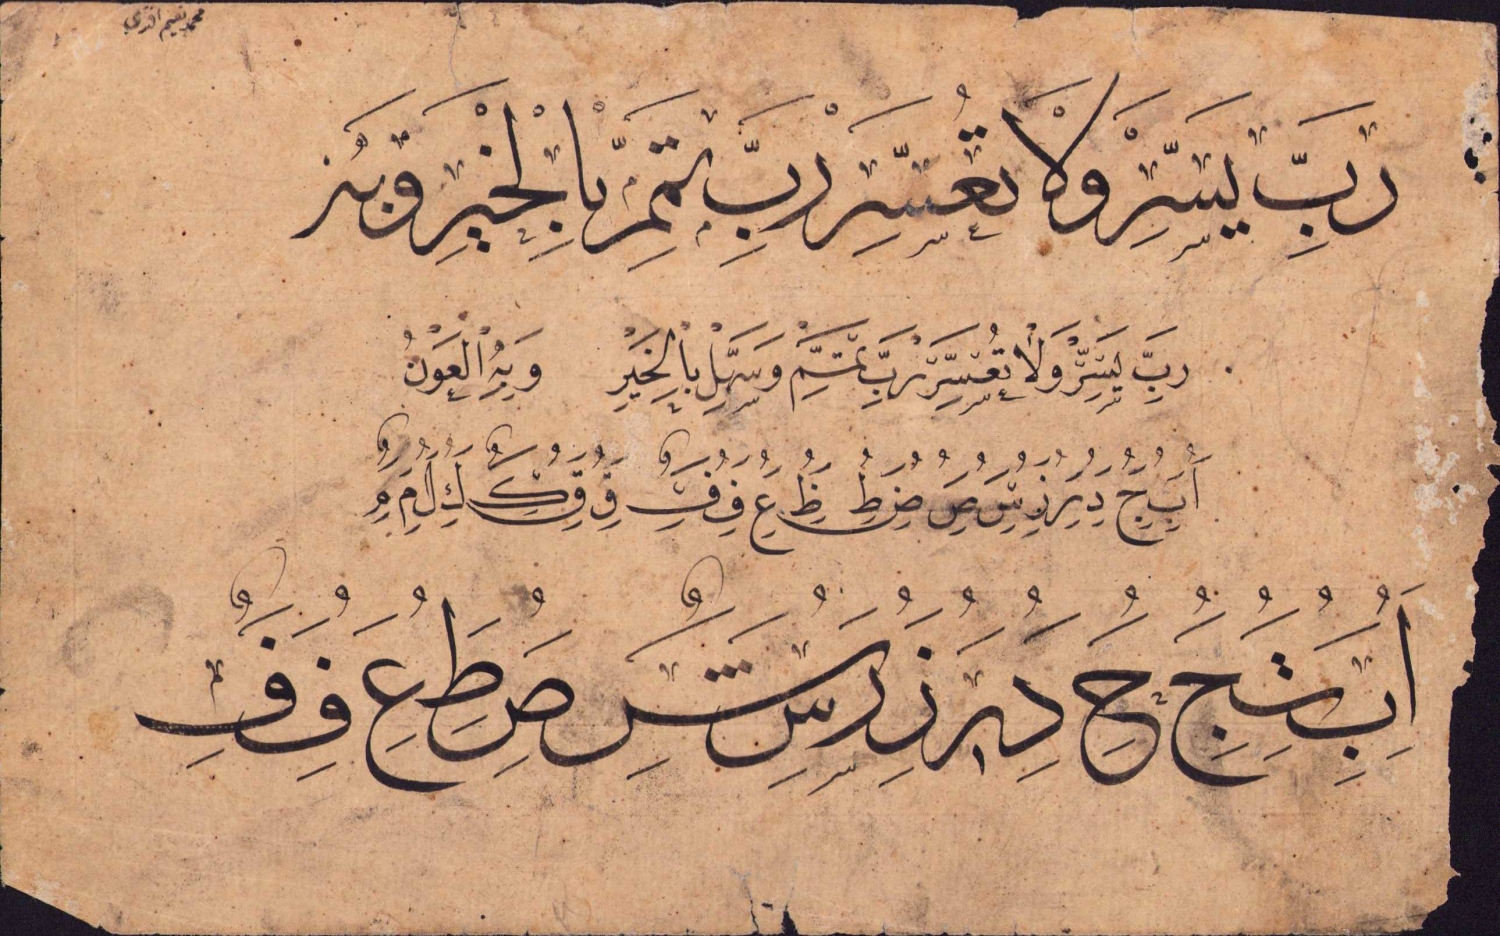 محمد نعيم افندي
رَبِّ يَسِّرْ وَلَا تُعَسِّرْ رَبِّ تَمِّمْ بِالْخَيْرِ وَبِهِ
رَبِّ يَسِّرْ وَلَا تُعَسِّرْ رَبِّ تَمِّمْ وَسَهِّلْ بِالْخَيْرِ وَبِهِ الْعَوْنُ
ا ب ج د ر ز س ص ض ط ظ ع ف ف و ق ك ك ل م م
ا ب ث ج ح د ر ز ر س ش ص ط ع ف ف